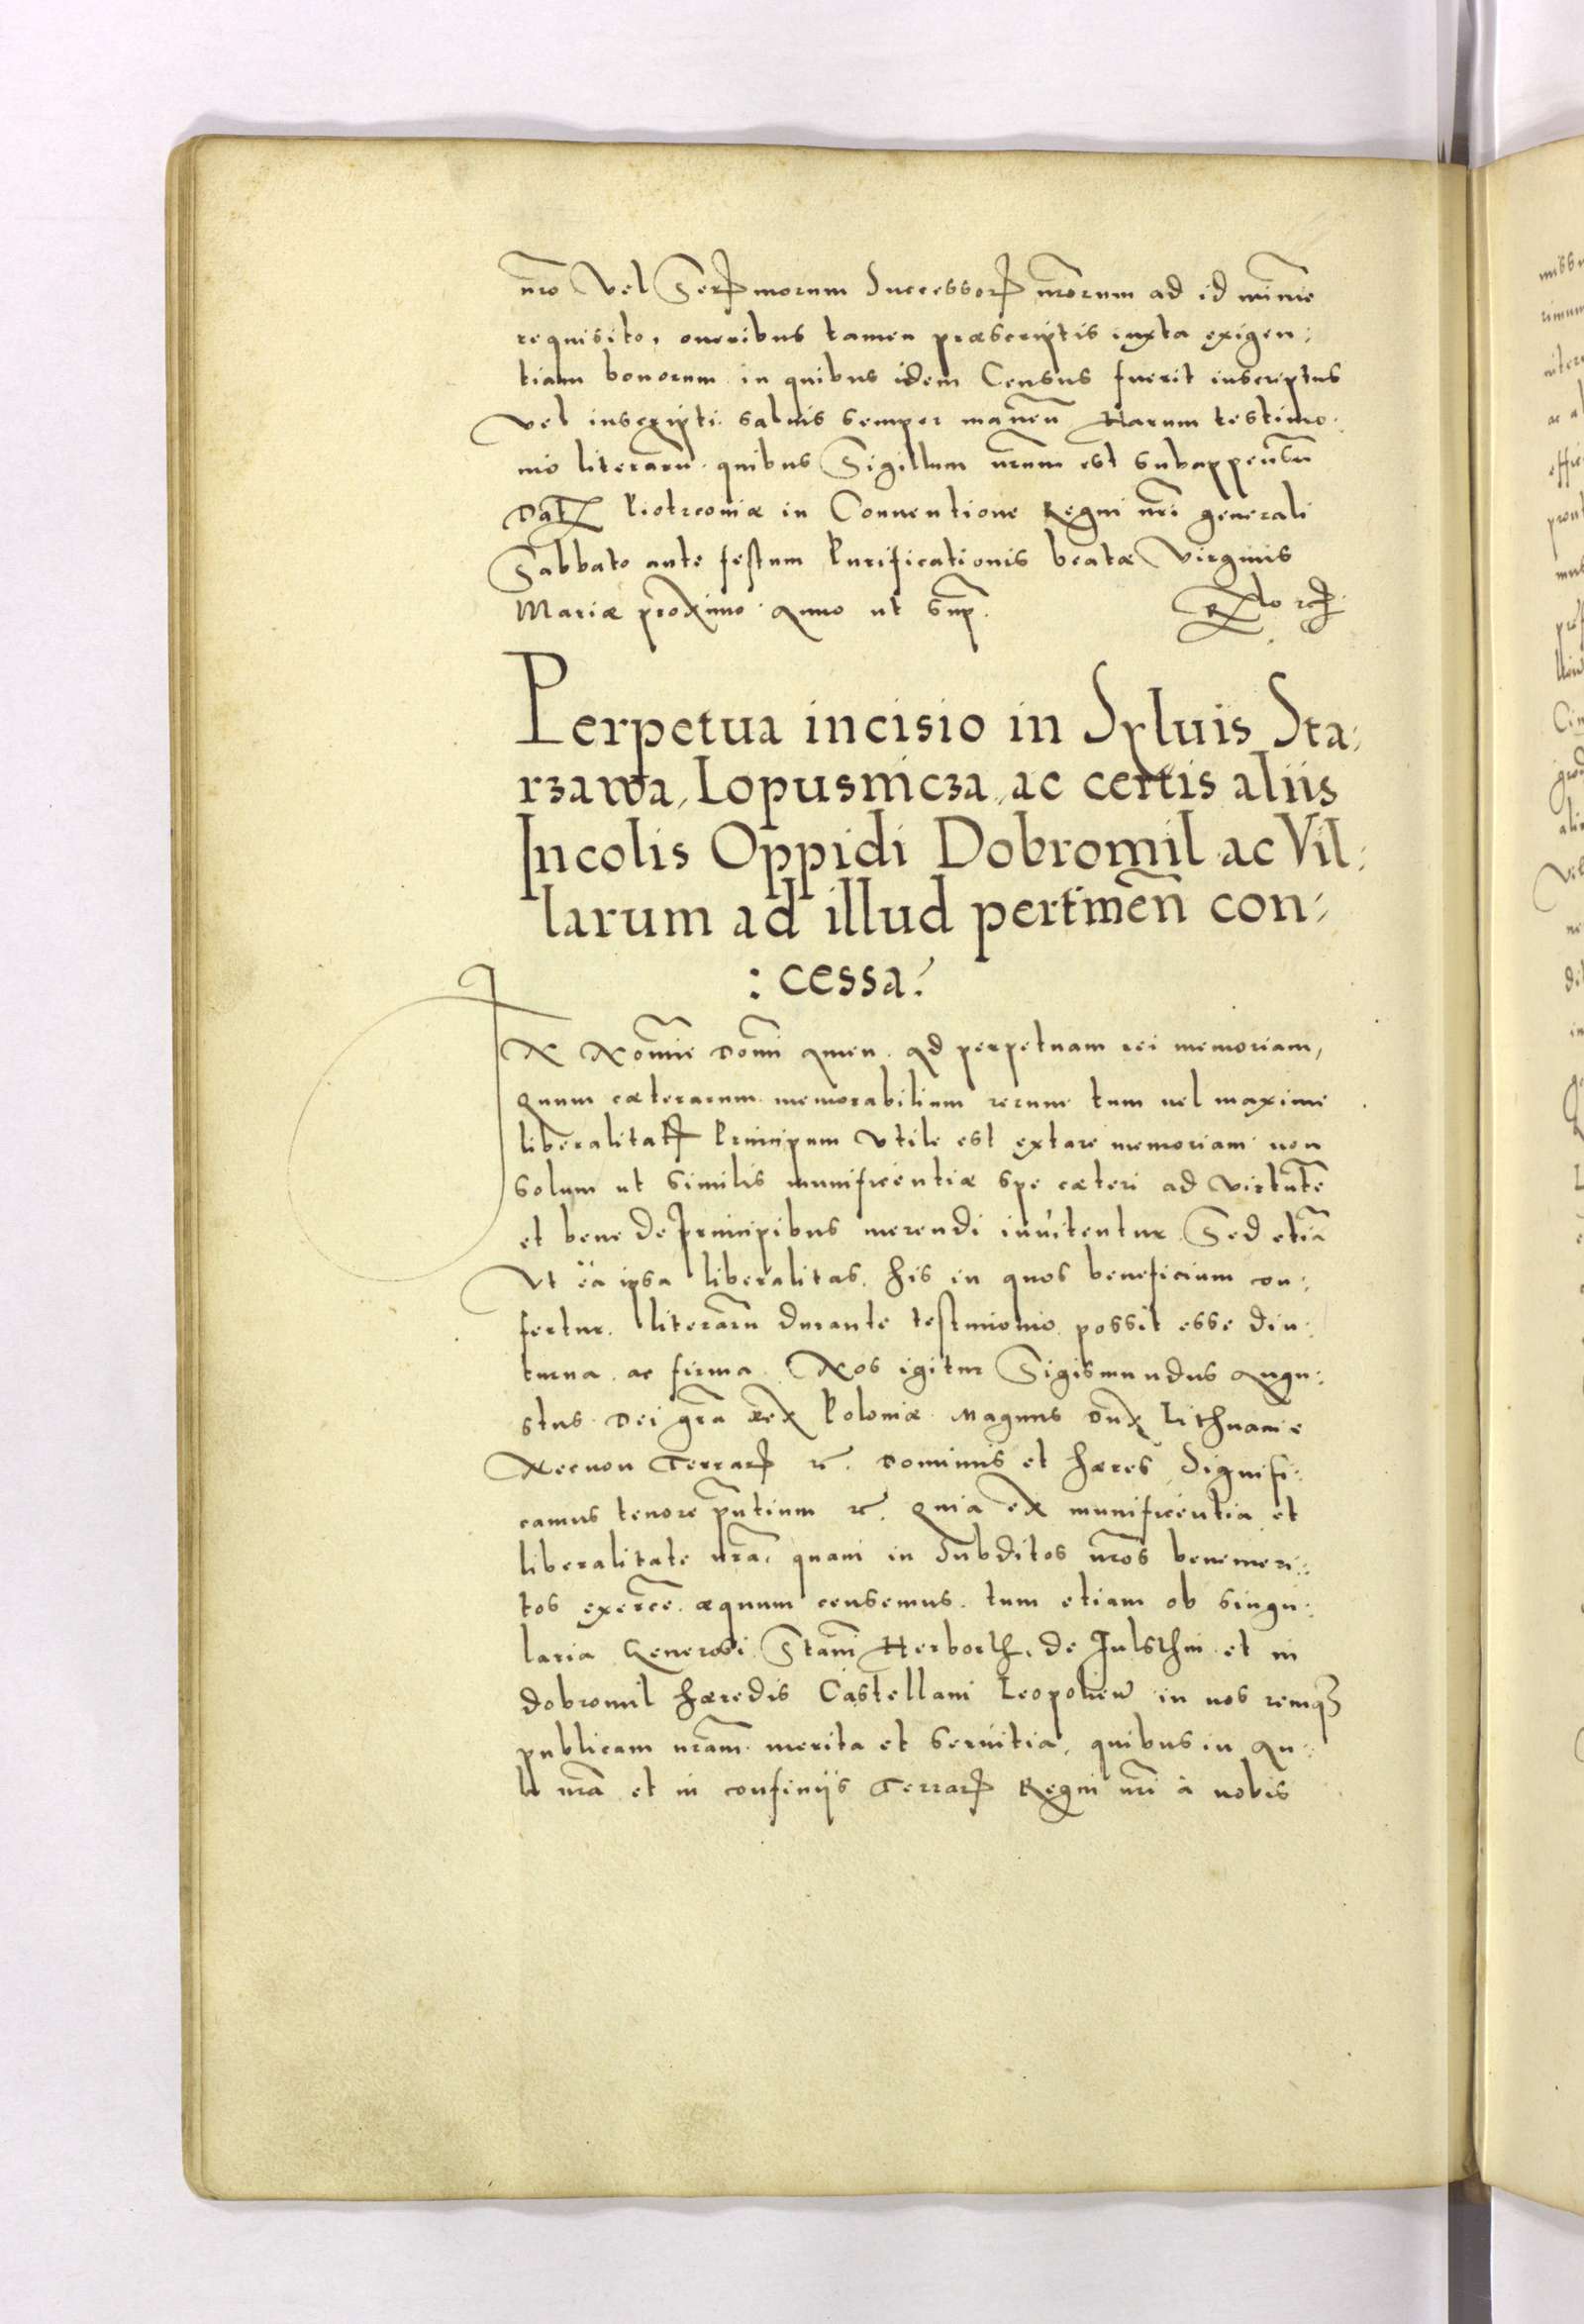 nro̅ Vel Serꝝmorum Successorꝝ nrorum ad id minime
requisito, oneribus tamen præscriptis iuxta exigen:
tiam bonorum in quibus idem Census fuerit inscriptus
vel inscripti saluis semper manen̅ Harum testimo:
nio literaru̅ quibus Sigillum nrum est subappensu̅
Dat Piotrcoviæ in Conuentione Regni nri̅ generali
Sabbato ante festum Purificationis beatæ Virginis
Mariæ proximo Anno ut sup.
Perpetua incisio in Syluis Sta:
rzawa, Lopusnicza, ac certis aliis
Incolis Oppidi Dobromil ac Vil:
larum ad illud pertinen̅ con:
:cessa.
IN Nomi̅e Domi̅ Amen. Ad perpetuam rei memoriam,
Quum cæterarum memorabilium rerum tum uel maxime
liberalitatꝭ Principum Vtile est extare memoriam non
solum ut similis munificentiæ spe cæteri ad virtute̅
et bene de principibus merendi inuitentur Sed etia̅
Vt ea ipsa liberalitas, his in quos beneficium con:
fertur. literaru̅ durante testimonio possit esse diu:
turna ac firma. Nos igitur Sigismundus Augu:
stus Dei gra̅ Rex Poloniæ Magnus Dux Lithuanie
Necnon Terrarꝝ ꝛc̅. Dominus et hæres Signifi:
camus tenore pn̅tium ꝛc̅. Quia ex munificentia et
liberalitate nra̅, quam in Subditos nro̅s benemeri:
tos exerce̅ æquum censemus. tum etiam ob singu:
laria Generosi Stani̅ Herborth, de Fulsthin et in
dobromil hæredis Castellani Leopolien̅ in nos remqꝫ
publicam nra̅m merita et seruitia, quibus in Au:
la nra̅ et in confiniis Terrarꝝ Regni nri̅ à nobis